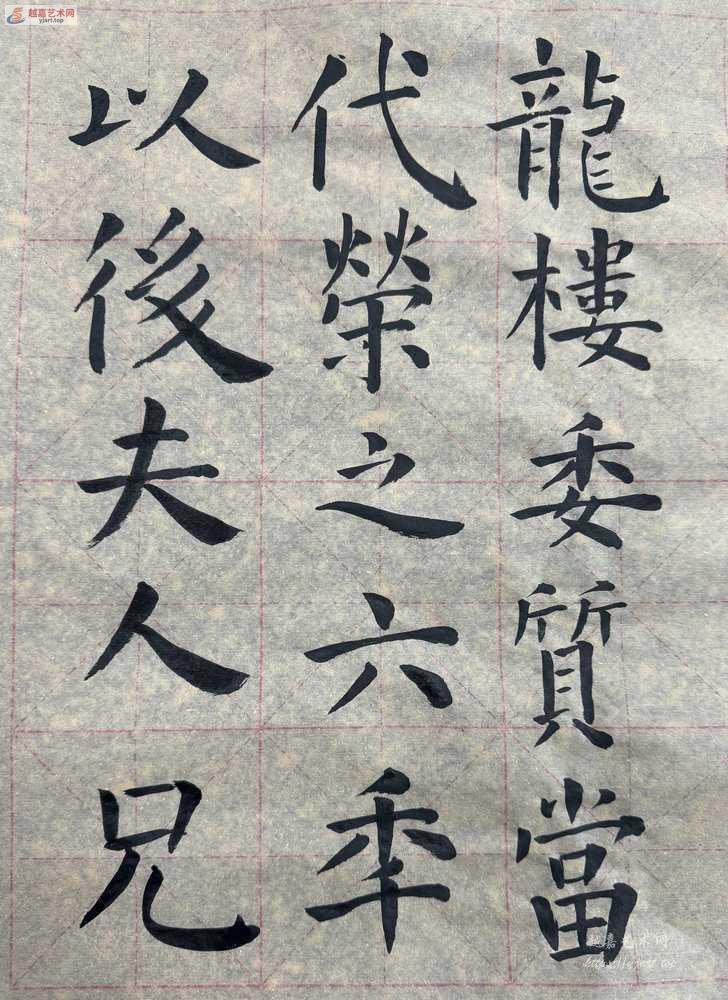 越嘉艺术网
yjart.top
龍樓委質當
代榮之六年
以後夫人兄
越嘉艺术网